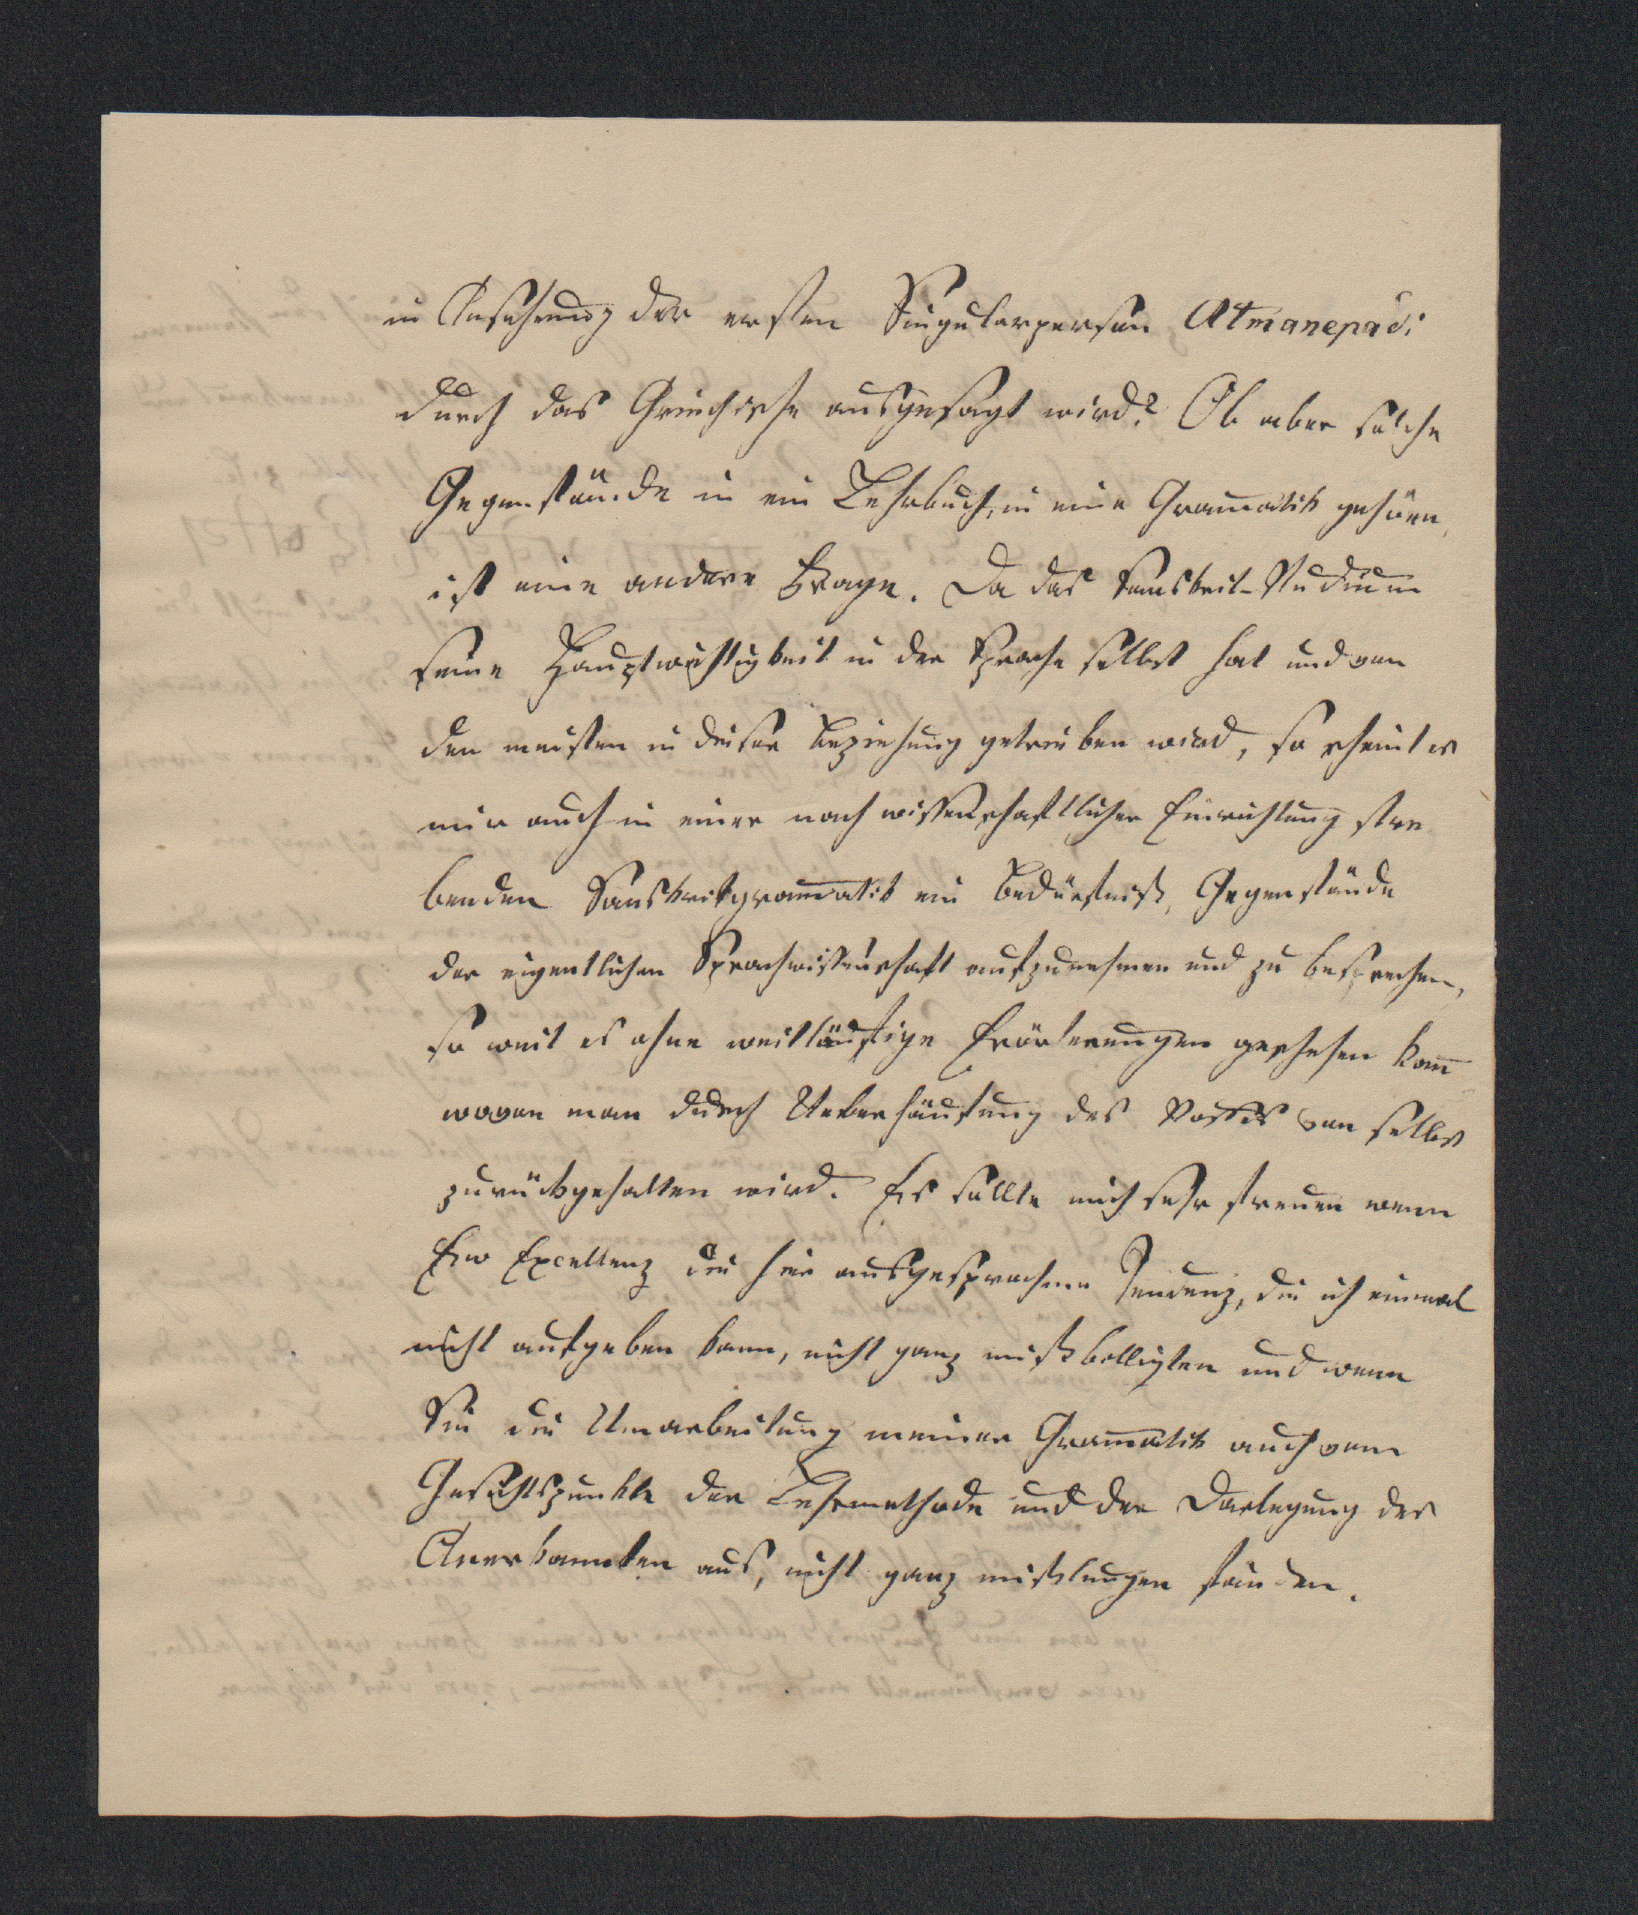 in Ansehung der ersten Singularperson Atmanepadi
durch das Griechische ausgesagt wird? Ob aber solche
Gegenstände in ein Lehrbuch, in eine Gram̅atik gehören,
ist eine andere Frage. Da das Sanskrit-Studium
seine Hauptwichtigkeit in der Sprache selbst hat und von
den meisten in dieser Beziehung getrieben wird, so scheint es
mir auch in einer nach wissenschaftlicher Einrichtung stre
benden Sanskritgram̅atik ein Bedürfniß, Gegenstände
der eigentlichen Sprachwissenschaft aufzunehmen und zu besprechen,
so weit es ohne weitläuftige Erörterungen geschehen kan̅
wovon man durch Ueberhäufung des Stoffes von selbst
zurückgehalten wird. Es sollte mich sehr freuen wenn
Ew Excellenz die hier ausgesprochene Tendenz, die ich einmal
nicht aufgeben kann, nicht ganz mißbilligten und wenn
Sie die Umarbeitung meiner Gram̅atik auch vom
Gesichtspunkte der Lehrmethode und der Darlegung des
Anerkannten aus, nicht ganz mißlungen fänden.